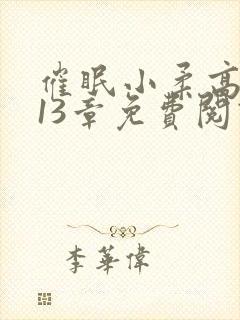 催眠小柔高
13章免費閱
李華偉